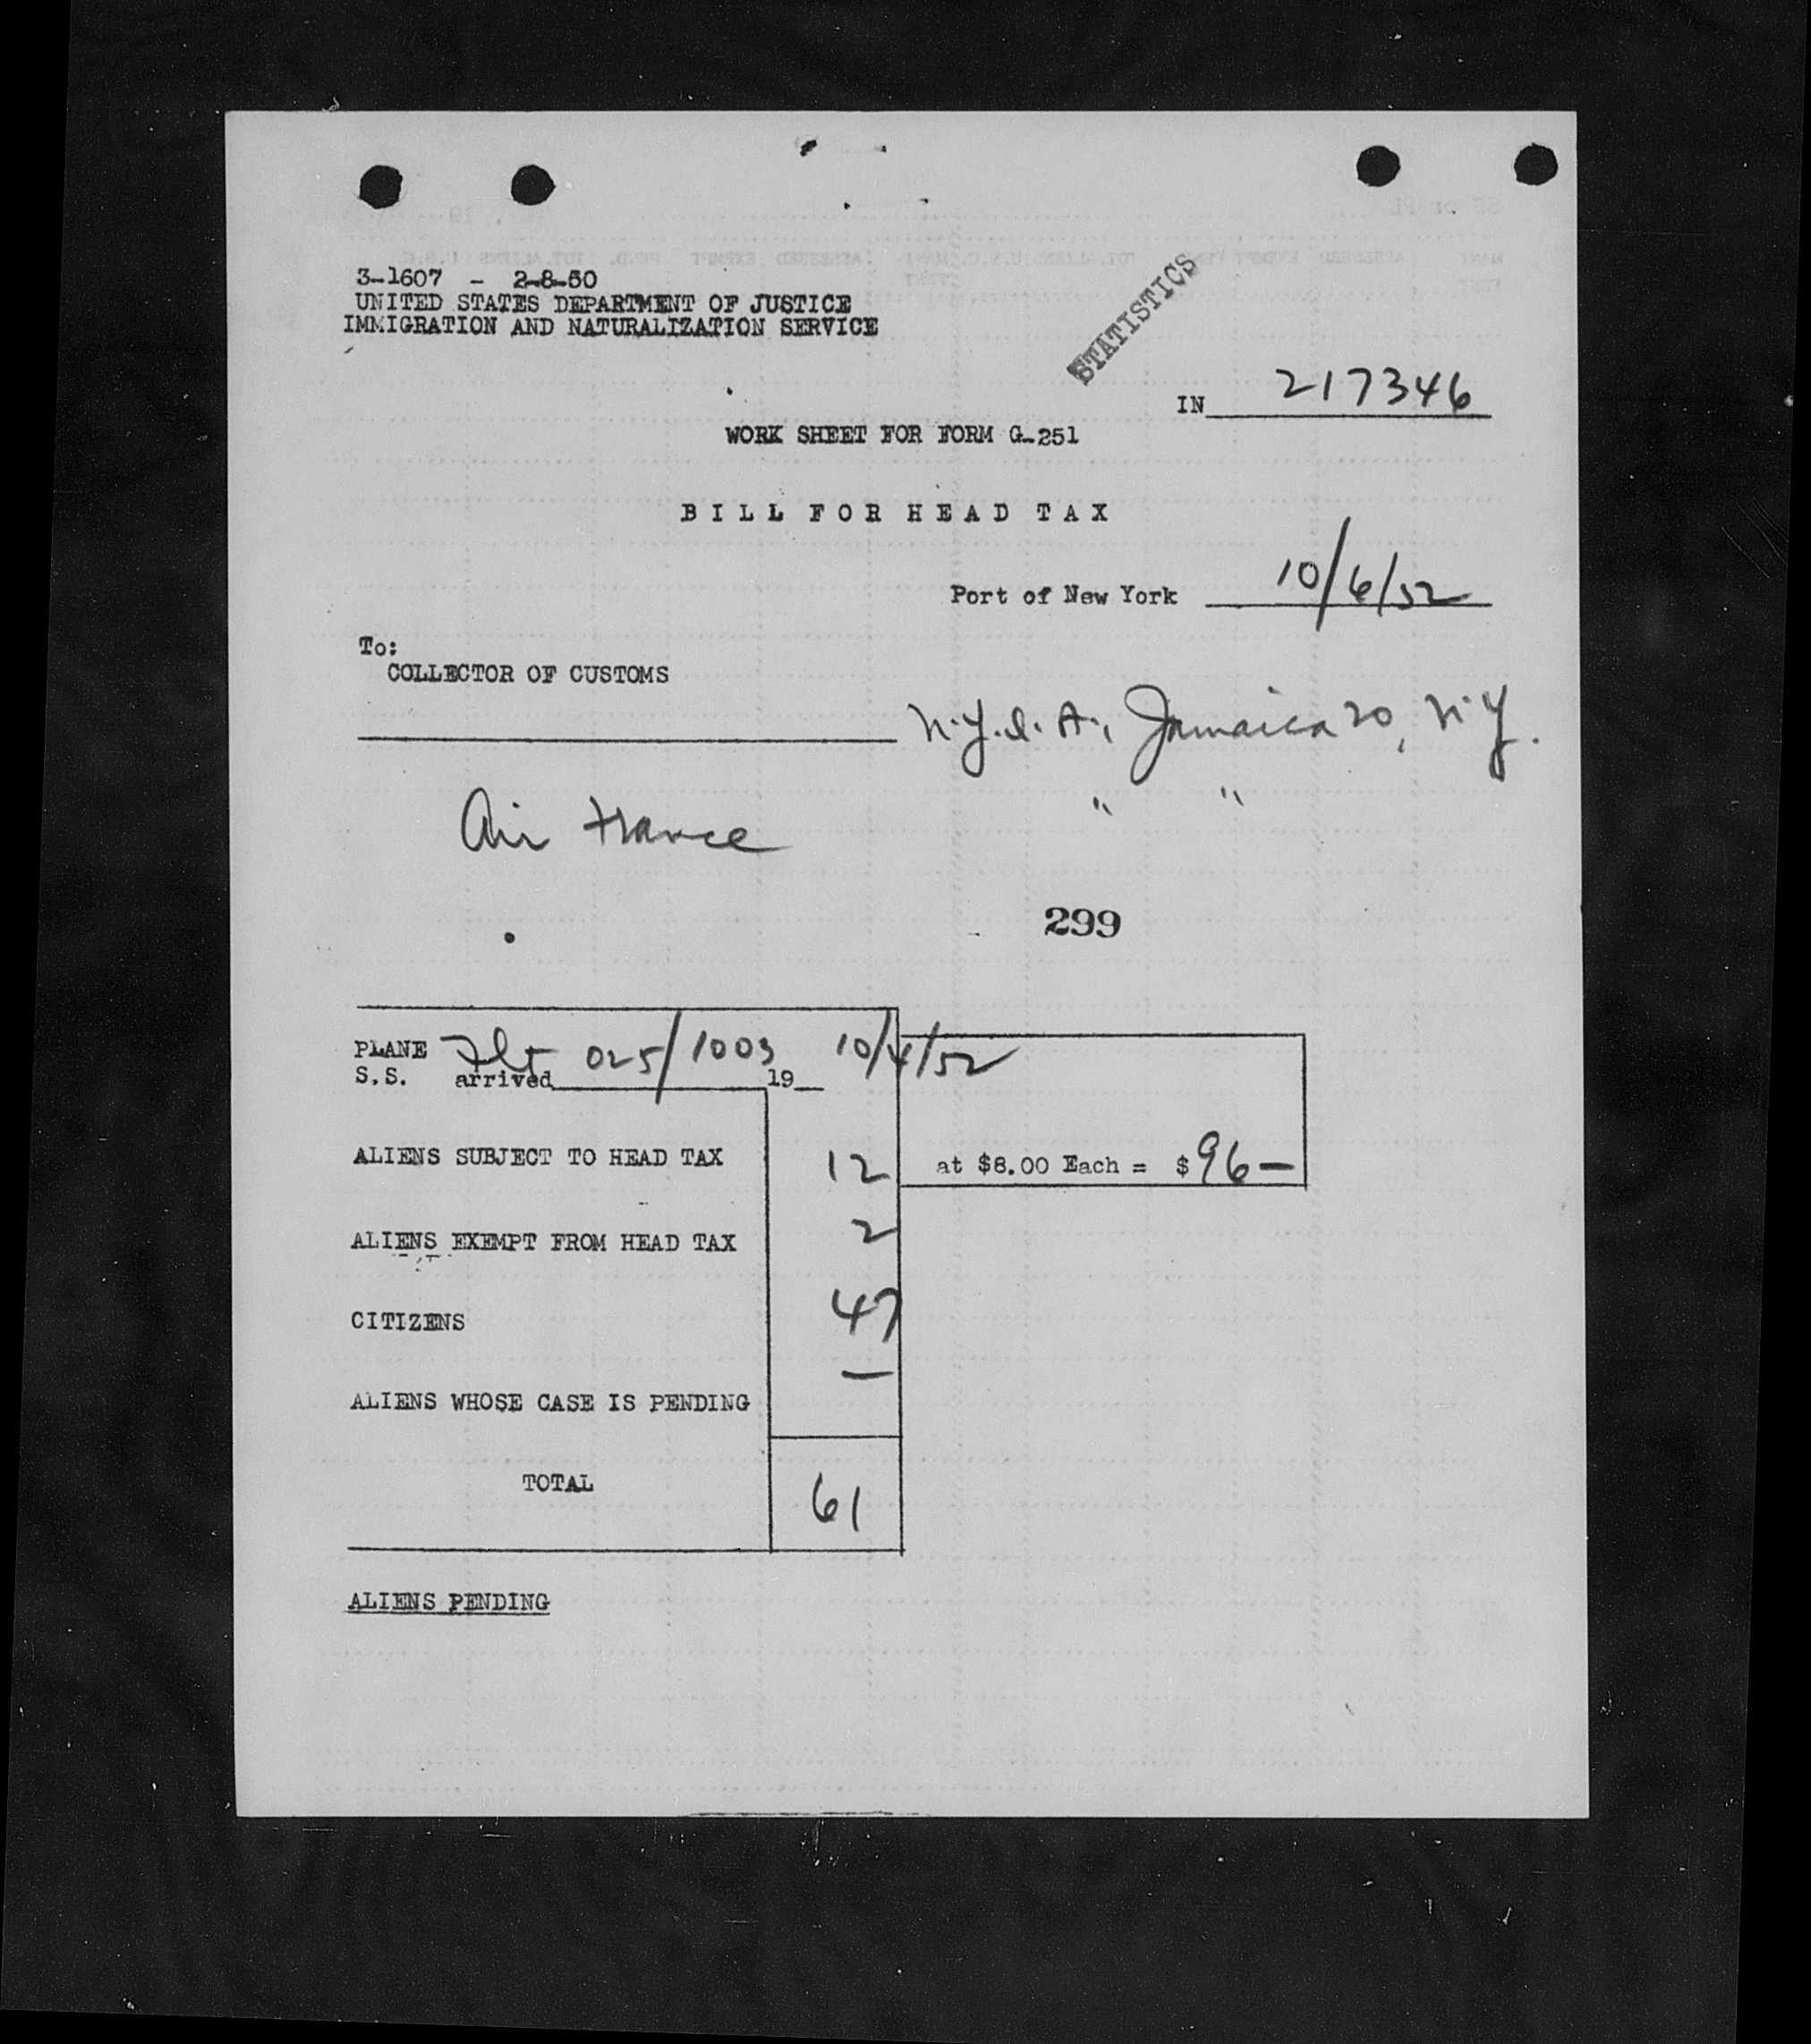 3-1607 - 2-8-50
UNITED STATES DEPARTMENT OF JUSTICE
IMMIGRATION AND NATURALIZATION SERVICE
STATISTICS
IN 217346
WORK SHEET FOR FORM G-251
BILL FOR HEAD TAX
Port of New York 10/6/52
To:
COLLECTOR OF CUSTOMS
N.Y.I.A., Jamaica 20, N.Y.
Air France " "
299
PLANE Flt 025/1003 10/4/52
S.S. arrived 19
ALIENS SUBJECT TO HEAD TAX 12 at $8.00 Each = $96—
ALIENS EXEMPT FROM HEAD TAX 2
CITIZENS 47
ALIENS WHOSE CASE IS PENDING —
TOTAL 61
ALIENS PENDING